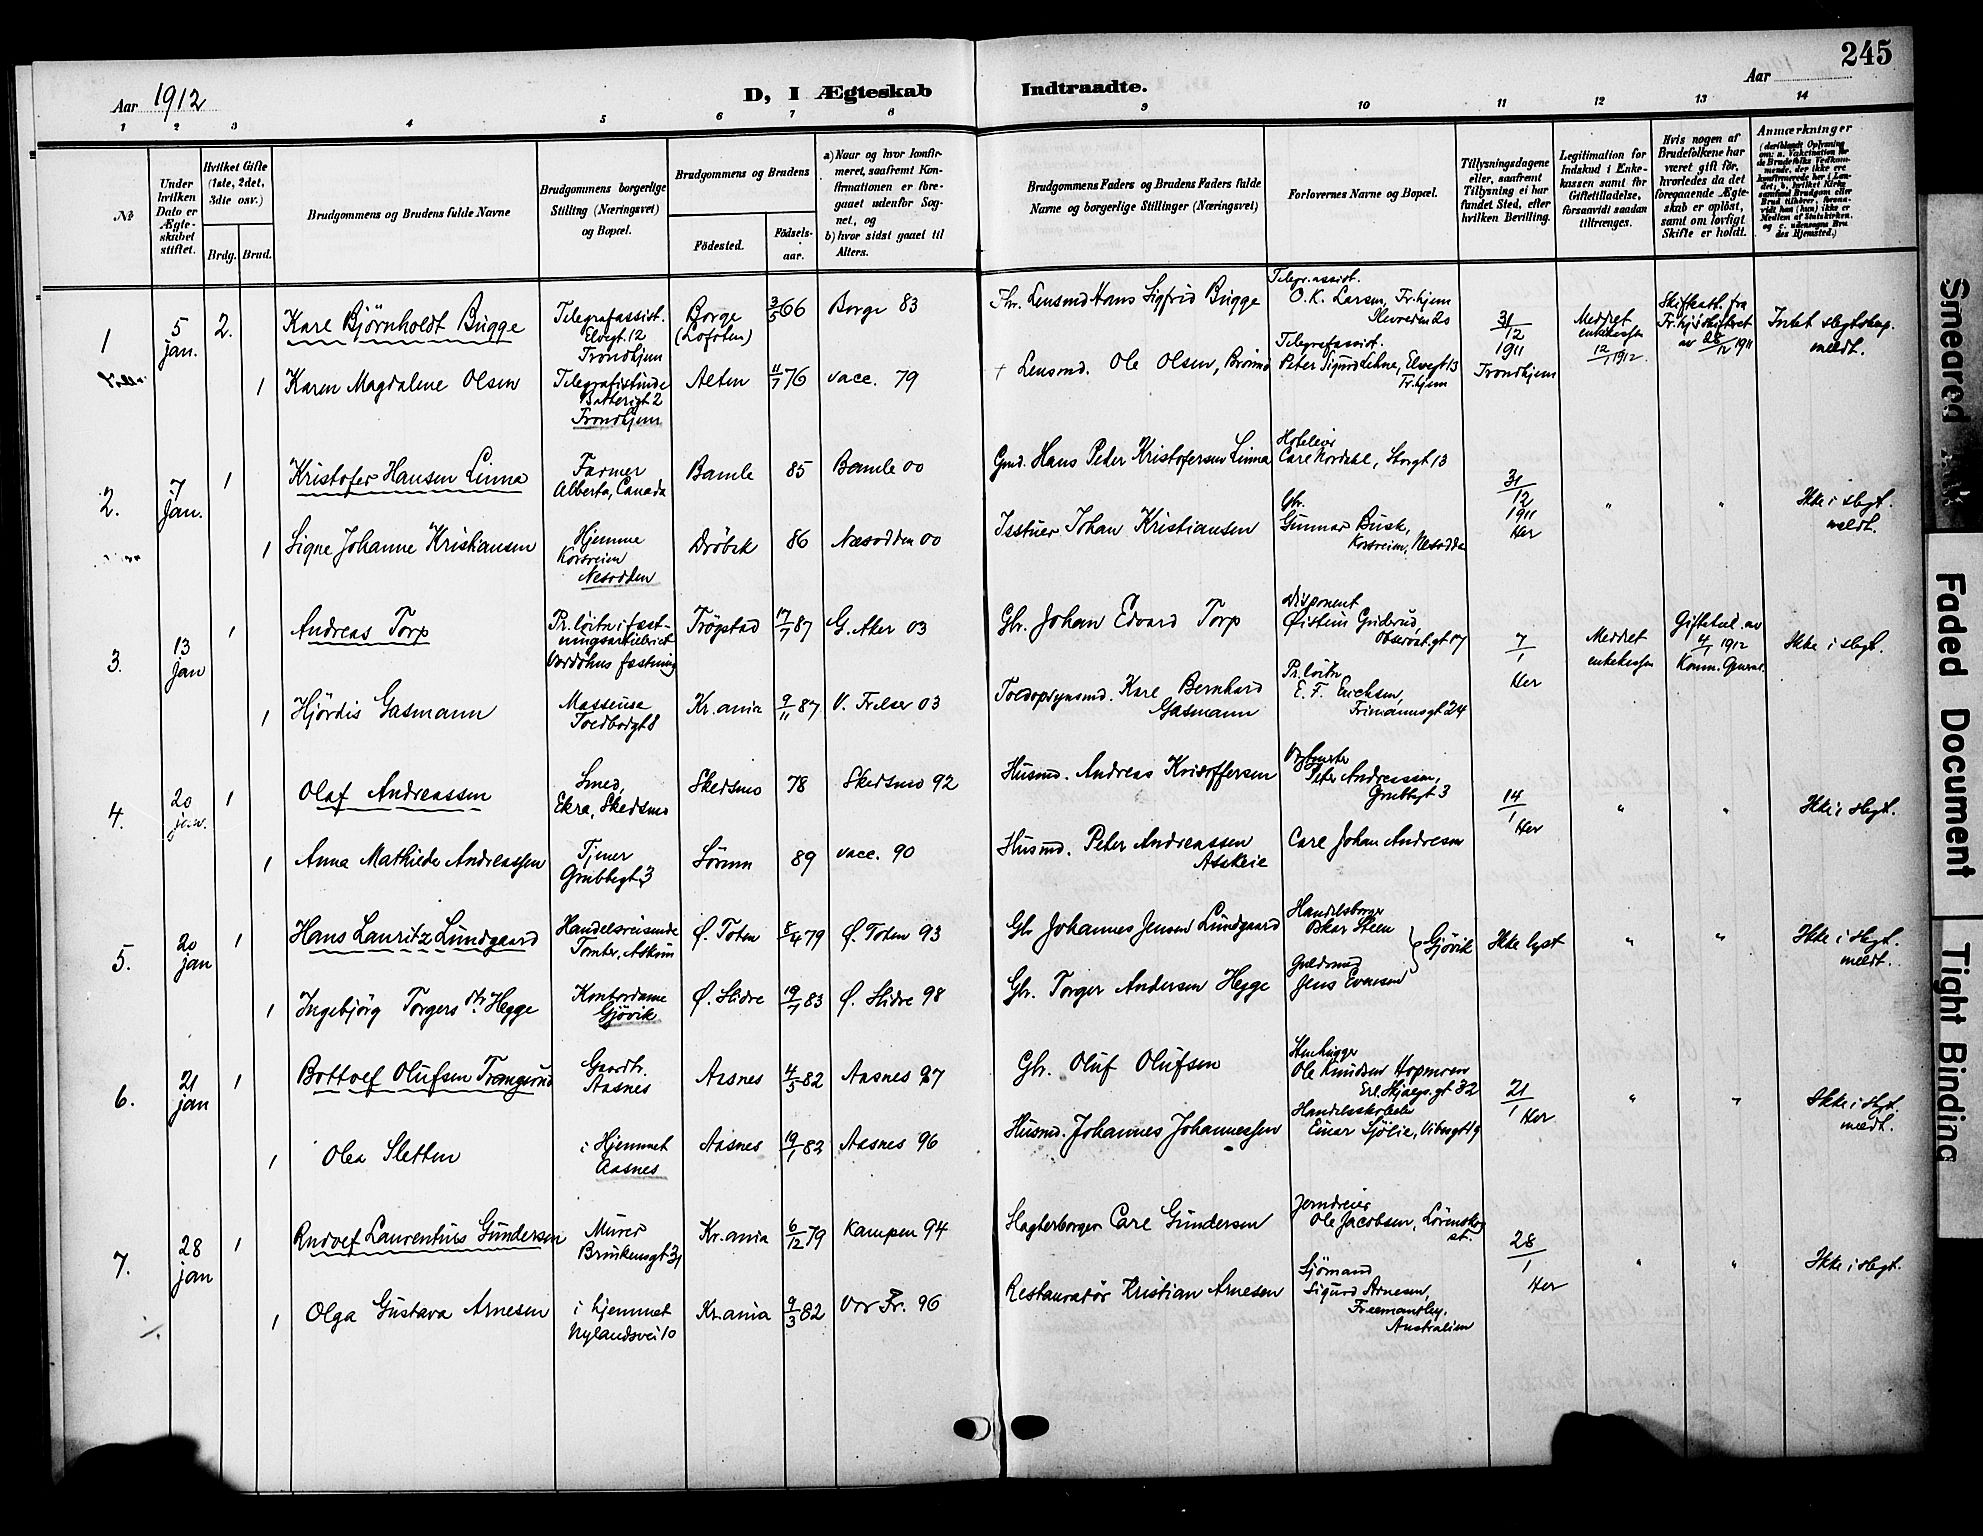 245
Aar 1912
D, I Ægteskab Indtraadte.
Aar
1 2 3 4 5 6 7 8 9 10 11 12 13 14
No
Under hvilken Dato er Ægteskabet stiftet.
Hvilket Gifte (1ste, 2det, 3die osv.)
Brdg. Brud.
Brudgommens og Brudens fulde Navne
Brudgommens borgerlige Stilling (Næringsvei) og Bopæl.
Brudgommens og Brudens
Födested.
Födselsaar.
a) Naar og hvor konfirmeret, saafremt Konfirmationen er foregaaet udenfor Sognet, og
b) hvor sidst gaaet til Alters.
Brudgommens Faders og Brudens Faders fulde Navne og borgerlige Stillinger (Næringsvei)
Forlovernes Navne og Bopæl.
Tillysningsdagene eller, saafremt Tillysning ei har fundet Sted, efter hvilken Bevilling.
Legitimation for Indskud i Enkekassen samt for Giftetilladelse, forsaavidt saadan tiltrænges.
Hvis nogen af Brudefolkene har været gift för, hvorledes da det foregaaende Ægteskab er oplöst, samt om lovligt Skifte er holdt.
Anmærkninger
(deriblandt Oplysning om: a. Vakcination for de Brudefolks Vedkommende, der ikke ere konfirmerede her i Landet; b. hvilket Kirkesamfund Brudgom eller Brud tilhörer, forsaavidt han (hun) ikke er Medlem af Statskirken, og c. udensogns Brudes Hjemsted.)
1
5 jan.
2.
Karl Björnholdt Bugge
Telegrafassist. Elvegt. 12 Trondhjem
Borge (Lofoten)
3/5 66
Borge 83
Fhr. Lensmd Hans Sigfrid Bugge
Telegr.assist. O. K. Larsen, Tr.hjem
31/12 1911 Trondhjem
Meddet enkekassen 12/1 1912.
Skifteatt. fra Tr.hj. skifteret av 28/12 1911
Intet slegtskap. meldt.
1
Karen Magdalene Olsen
Telegrafistinde Batterigt 2 Trondhjem
Alten
11/7 76
vacc. 79
+ Lensmd. Ole Olsen,
Telegrafassist. Peter Sigurd Lehne, Elvegt 13 Tr.hjem
2.
7 Jan.
1
Kristofer Hansen Linna
Farmer Alberta, Canada
Bamle
85
Bamle 00
Gmd. Hans Peder Kristofersen Linna
Hoteleier Carl Nordahl, Storgt 13
31/12 1911 Her
"
"
Ikke i slegt. meldt.
1
Signe Johanne Kristiansen
Hjemme Korsveien Nesodden
Dröbak
86
Næsodden 00
Isstuer Johan Kristiansen
Gbr. Gunnar Busk, Korsveien, Nesodden
3.
13 Jan
1
Andreas Torp
Pr.löitn i fæstningsartilleriet Vardöhus fæstning
Trögstad
17/7 87
G. Aker 03
Gbr. Johan Edvard Torp
Disponent Öistein Griderud, Observat.gt 17
7/1 Her
Meddet enkekassen
Giftetil. av 4/1 1912 Komm. General.
Ikke i slegt.
1
Hjördis Gasmann
Masseuse Toldbodgt 8
Kr.ania
9/11 87
V. Frelser 03
Toldopsynsmd. Karl Bernhard Gasmann
Pr. löitn E. F. Erichsen, Frimannsgt 24
4.
20 jan.
1
Olaf Andreassen
Smed, Ekra, Skedsmo
Skedsmo
78
Skedsmo 92
Husmd. Andreas Kristoffersen
Peter Andreassen, Grubbegt 3
14/1 Her
"
"
Ikke i slegt.
1
Anna Mathilde Andreassen
Tjener Grubbegt 3
Sörum
89
vacc. 90
Husmd. Peter Andreassen Askeie
Carl Johan Andresen
5.
20 jan
1
Hans Lauritz Lundgaard
Handelsreisende Tomter, Askim
Ø. Toten
8/4 79
Ø. Toten 93
Gbr Johannes Jensen Lundgaard
Handelsborger Oskar Steen
} Gjövik
Ikke lyst
"
"
Ikke i slegt. meldt.
1
Ingebjörg Torgersdtr. Hegge
Kontordame Gjövik
Ø. Slidre
19/1 83
Ø. Slidre 98
Gbr. Torger Andersen Hegge
Guldsmed Jens Evensen
6.
21 jan
1
Bottolf Olufsen Trangsrud
Gaardbr. Aasnes
Aasnes
4/5 82
Aasnes 97
Gbr. Oluf Olufsen
Stenhugger Ole Knudsen Hopmoen Erl. Skjalgs. gt 32
21/1 Her
"
"
Ikke i slegt. meldt.
1
Olea Sletten
i Hjemmet Aasnes
Aasnes
19/1 82
Aasnes 96
Husmd. Johannes Johannessen
Einar Sjölie, Vibesgt 19
7.
28 jan
1
Rudolf Laurentius Gundersen
Murer Brinkensgt 31
Kr.ania
6/12 79
Kampen 94
Slagterborger Carl Gundersen
Jerndreier Ole Jacobsen, Lörenskog st.
28/1 Her
"
"
Ikke i slegt.
1
Olga Gustava Arnesen
i hjemmet Nylandsvei 10
Kr.ania
9/3 82
Vor Fr. 96
Restauratör Kristian Arnesen
Sjömand Sigurd Arnesen, Freemantley, Australien
Smeared Ink
Faded Document
Tight Binding